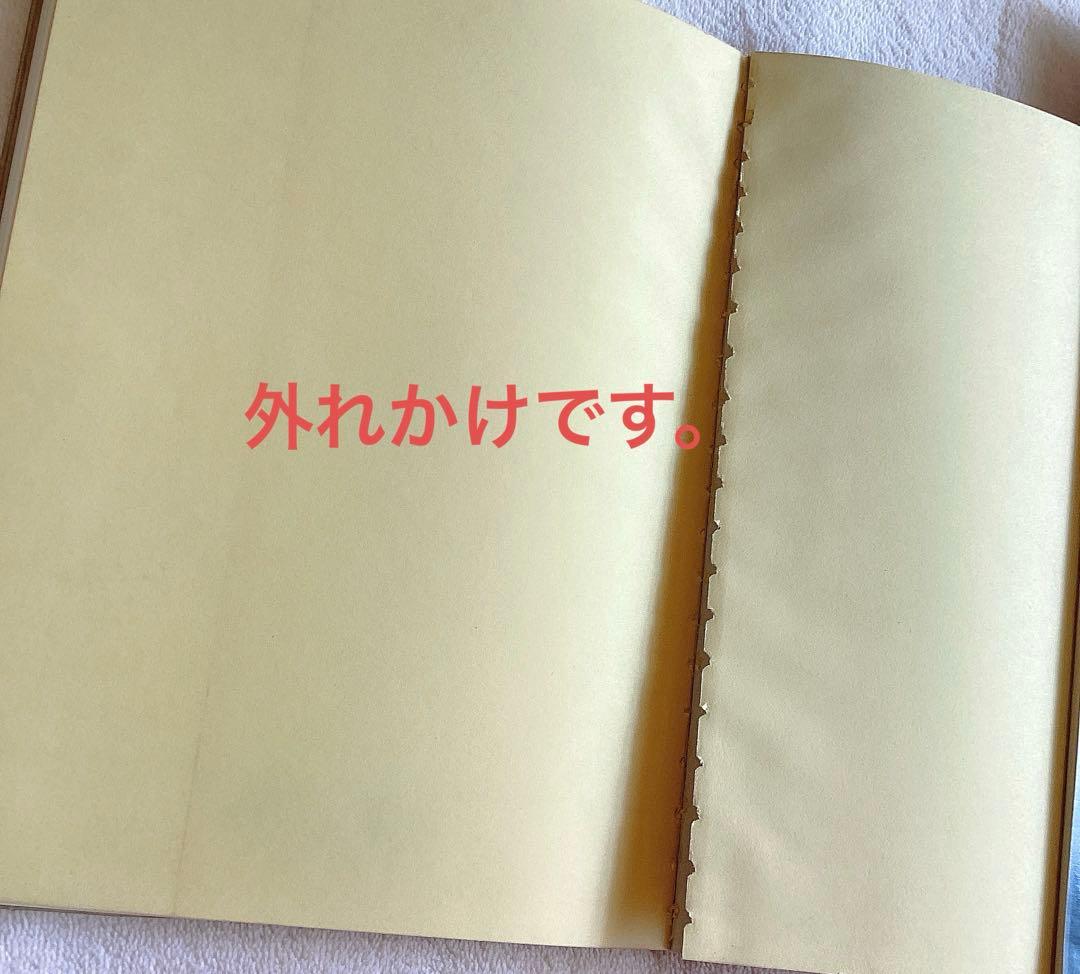 外れかけです。